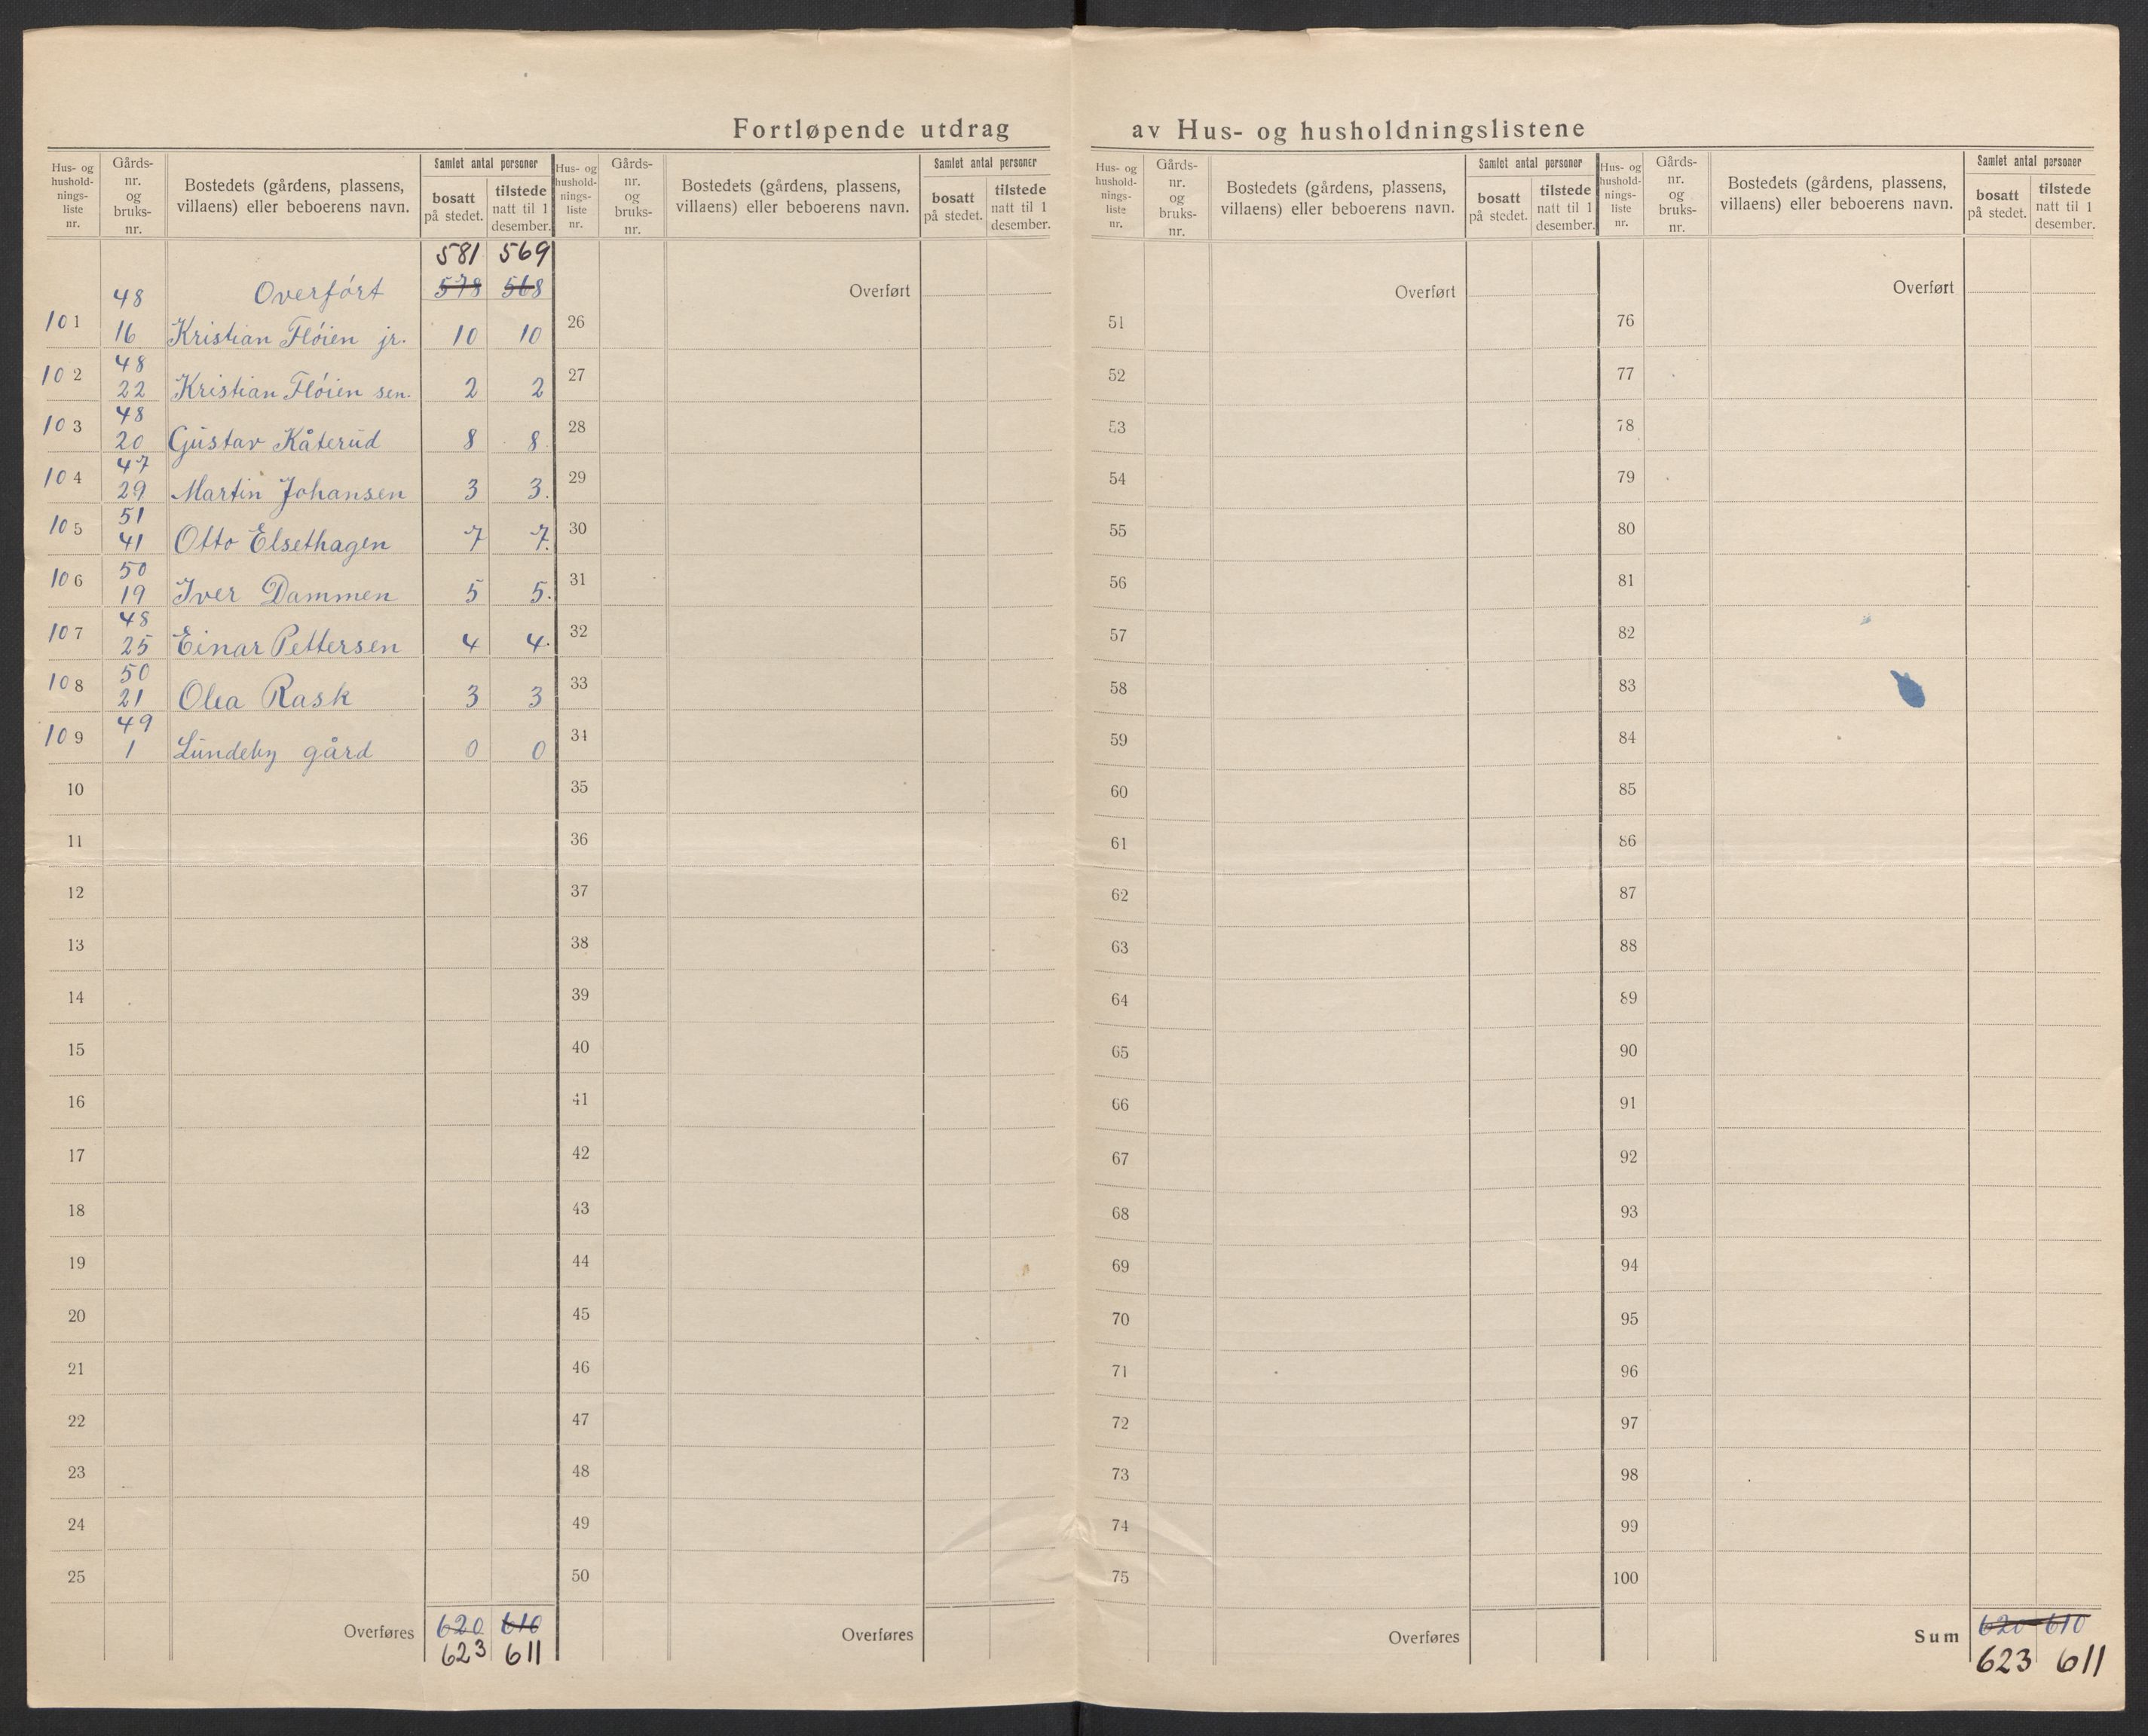 Fortløpende utdrag av Hus- og husholdningslistene
Hus- og hushold-nings-liste nr. Gårds-nr. og bruks-nr. Bostedets (gårdens, plassens, villaens) eller beboerens navn. Samlet antal personer bosatt på stedet. tilstede natt til 1 desember.
Hus- og hushold-nings-liste nr. Gårds-nr. og bruks-nr. Bostedets (gårdens, plassens, villaens) eller beboerens navn. Samlet antal personer bosatt på stedet. tilstede natt til 1 desember.
Hus- og hushold-nings-liste nr. Gårds-nr. og bruks-nr. Bostedets (gårdens, plassens, villaens) eller beboerens navn. Samlet antal personer bosatt på stedet. tilstede natt til 1 desember.
Hus- og hushold-nings-liste nr. Gårds-nr. og bruks-nr. Bostedets (gårdens, plassens, villaens) eller beboerens navn. Samlet antal personer bosatt på stedet. tilstede natt til 1 desember.
581 569
Overført 578 568
101 48 16 Kristian Fløien jr. 10 10
102 48 22 Kristian Fløien sen. 2 2
103 48 20 Gustav Kåterud 8 8
104 47 29 Martin Johansen 3 3.
105 51 41 Otto Elsethagen 7 7.
106 50 19 Iver Dammen 5 5.
107 48 25 Einar Pettersen 4 4.
108 50 21 Olea Rask 3 3
109 49 1 Lundeby gård 0 0
10
11
12
13
14
15
16
17
18
19
20
21
22
23
24
25
Overføres 620 610
623 611
Overført
26
27
28
29
30
31
32
33
34
35
36
37
38
39
40
41
42
43
44
45
46
47
48
49
50
Overføres
Overført
51
52
53
54
55
56
57
58
59
60
61
62
63
64
65
66
67
68
69
70
71
72
73
74
75
Overføres
Overført
76
77
78
79
80
81
82
83
84
85
86
87
88
89
90
91
92
93
94
95
96
97
98
99
100
Sum 620 610
623 611